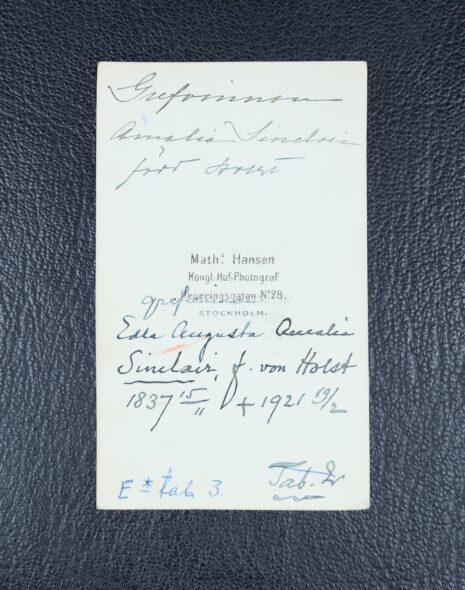 Grefvinnan
Amalia Sinclair
född Holst
Math.s Hansen
Kongl. Hof-Photograf
Regeringsgatan No 28.
STOCKHOLM.
grefvinnan
Edla Augusta Amalia
Sinclair, f. von Holst
1837 15/11 + 1921 19/2
E * tab 3.
Tab.